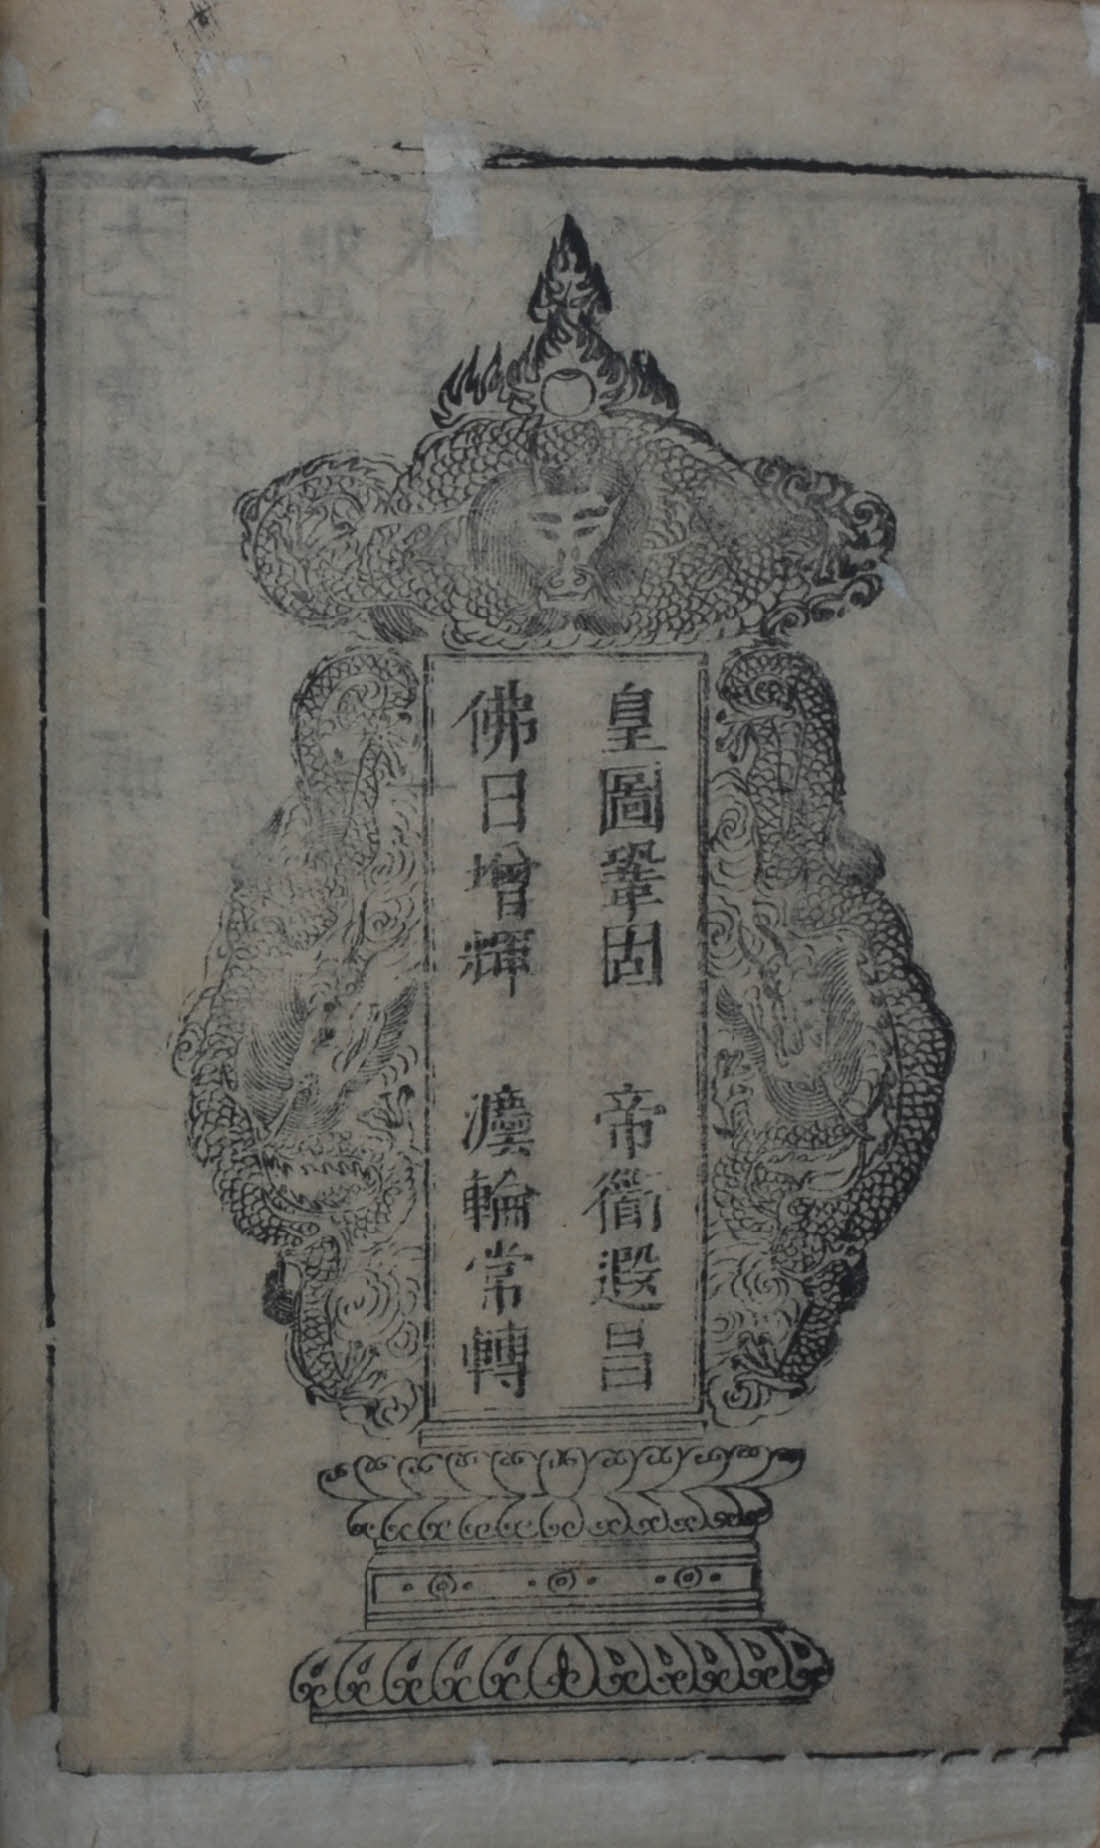 皇圖鞏固　帝衜遐昌
佛日增輝　灋輪常轉